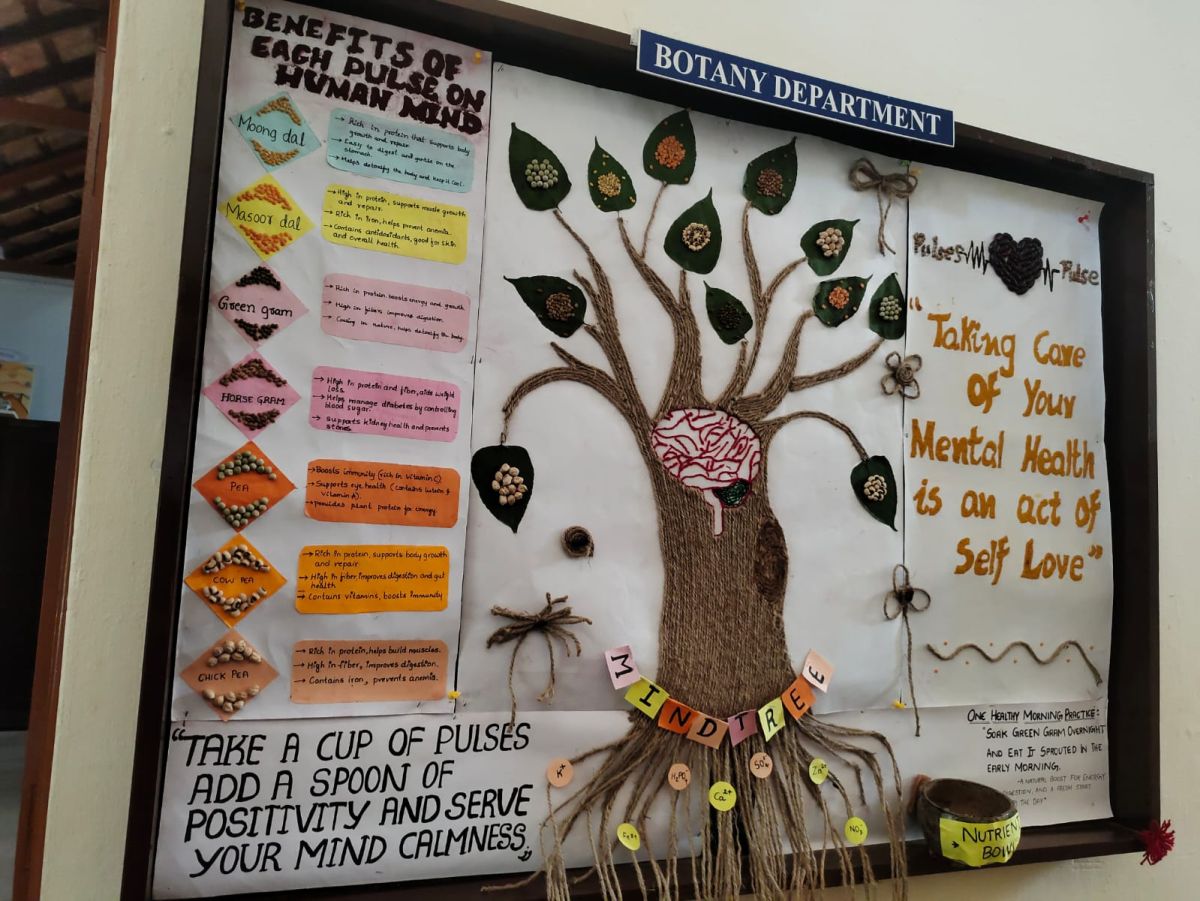 BOTANY DEPARTMENT
BENEFITS OF
EACH PULSE ON
HUMAN MIND
Moong dal
→ Rich in protein that supports body
growth and repair.
→ Easy to digest and gentle on the
stomach.
→ Helps detoxify the body and keep it cool.
Masoor dal
→ High in protein, supports muscle growth
and repair.
→ Rich in iron, helps prevent anemia.
→ Contains antioxidants, good for skin
and overall health.
Green gram
→ Rich in protein, boosts energy and growth
→ High in fibers improves digestion.
→ Cooling in nature, helps detoxify the body.
HORSE GRAM
→ High in protein and fibre, aids weight
loss.
→ Helps manage diabetes by controlling
blood sugar.
→ Supports kidney health and prevents
stones.
PEA
→ Boosts immunity (rich in vitamin C)
→ Supports eye health (contains lutein &
vitamin A).
→ provides plant protein for energy.
COW PEA
→ Rich in protein, supports body growth
and repair.
→ High in fiber, improves digestion and gut
health
→ Contains vitamins, boosts immunity
CHICK PEA
→ Rich in protein, helps build muscles.
→ High in fiber, improves digestion.
→ Contains iron, prevents anemia.
"TAKE A CUP OF PULSES
ADD A SPOON OF
POSITIVITY AND SERVE
YOUR MIND CALMNESS."
MINDTREE
K⁺
H₂PO₄⁻
SO₄²⁻
Zn²⁺
Ca²⁺
Fe³⁺
NO₃
Pulses
Pulse
"Taking Care
Of Your
Mental Health
is an act of
Self Love"
ONE HEALTHY MORNING PRACTICE:
"SOAK GREEN GRAM OVERNIGHT
AND EAT IT SPROUTED IN THE
EARLY MORNING.
-A NATURAL BOOST FOR ENERGY
DIGESTION, AND A FRESH START
THE DAY"
NUTRIENT
BOWL